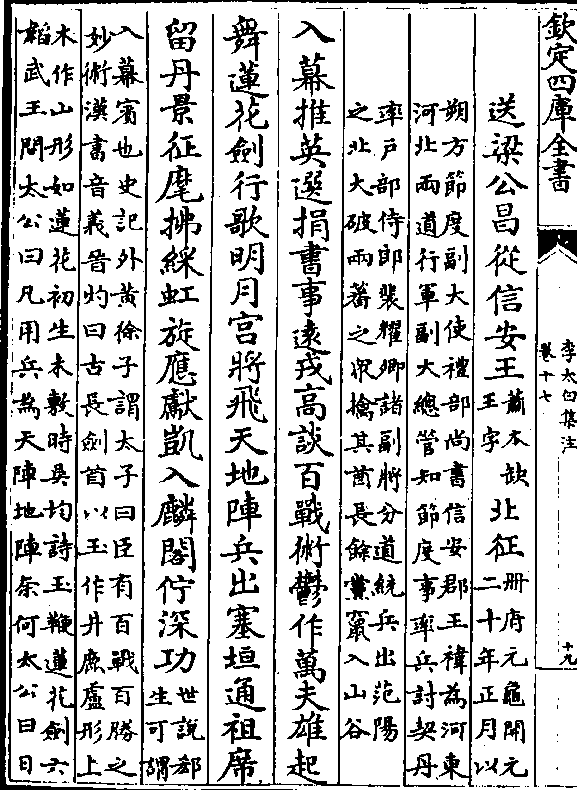 欽定四庫全書
李太白集注
卷十七
十九
送梁公昌從信安王蕭本缺王字北征冊府元龜開元二十年正月以
朔方節度副大使禮部尚書信安郡王禕為河東
河北兩道行軍副大總管知節度事率兵討契丹
率戶部侍郎裴耀卿諸副將分道統兵出范陽
之北大破兩蕃之衆擒其酋長餘黨竄入山谷
入幕推英選捐書事遠戎高談百戰術鬱作萬夫雄起
舞蓮花劍行歌明月宮將飛天地陣兵出塞垣通祖席
留丹景征麾拂綵虹旋應獻凱入麟閣佇深功世說郗生可謂
入幕賓也史記外黃徐子謂太子曰臣有百戰百勝之
妙術漢書音義晉灼曰古長劍首以玉作井鹿盧形上
木作山形如蓮花初生未敷時吳均詩玉鞭蓮花劍六
韜武王問太公曰凡用兵為天陣地陣奈何太公曰日